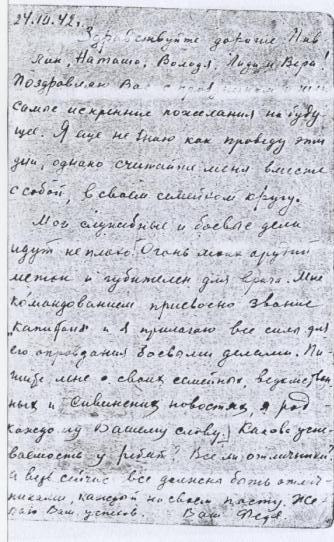 24.10.42г.
Здравствуйте дорогие Пав
лик, Наташа, Володя, Лида и Вера!
Поздравляю Вас с
самые искренние пожелания на буду
щее. Я еще не знаю как проведу эти
дни, однако считайте меня вместе
с собой, в своем семейном кругу.
Мои служебные и боевые дела
идут не плохо. Огонь моих орудий
меток и губителен для врага. Мне
командованием присвоено звание
„капитан" и я прилагаю все силы для
его оправдания боевыми делами. Пи
шите мне о своих семейных, ведомствен
ных и новостях, я рад
каждому Вашему слову. Какова успе
ваемость у ребят? Все ли отличники?
а ведь сейчас все должны быть отлич-
никами, каждый на своем посту. Же
лаю Вам успехов. Ваш Федя.